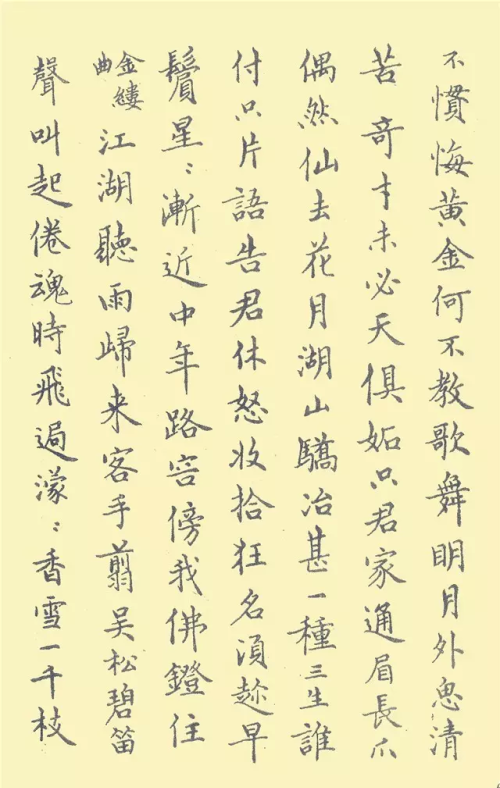 不慣悔黃金何不教歌舞明月外思清
苦竒才未必天俱妬只君家通眉長爪
偶然仙去花月湖山驕冶甚一種三生誰
付只片語告君休怒收拾狂名須趁早
鬢星〻漸近中年路容傍我佛鐙住
金縷曲
江湖聽雨歸来客手翦吳松碧笛
聲叫起倦魂時飛遍濛〻香雪一千枝